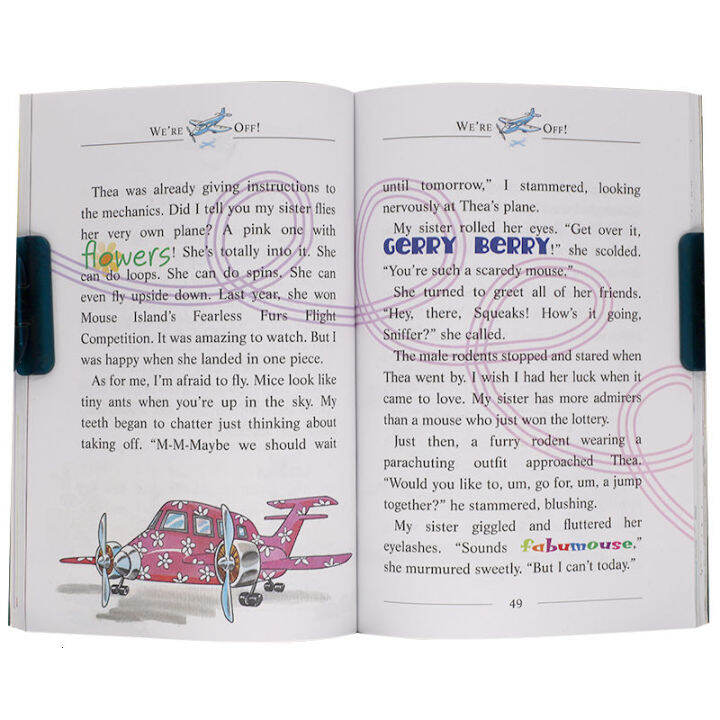 WE'RE OFF!
Thea was already giving instructions to
the mechanics. Did I tell you my sister flies
her very own plane? A pink one with
flowers! She's totally into it. She
can do loops. She can do spins. She can
even fly upside down. Last year, she won
Mouse Island's Fearless Furs Flight
Competition. It was amazing to watch. But I
was happy when she landed in one piece.
As for me, I'm afraid to fly. Mice look like
tiny ants when you're up in the sky. My
teeth began to chatter just thinking about
taking off. "M-M-Maybe we should wait
WE'RE OFF!
until tomorrow," I stammered, looking
nervously at Thea's plane.
My sister rolled her eyes. "Get over it,
GERRY BERRY!" she scolded.
"You're such a scaredy mouse."
She turned to greet all of her friends.
"Hey, there, Squeaks! How's it going,
Sniffer?" she called.
The male rodents stopped and stared when
Thea went by. I wish I had her luck when it
came to love. My sister has more admirers
than a mouse who just won the lottery.
Just then, a furry rodent wearing a
parachuting outfit approached Thea.
"Would you like to, um, go for, um, a jump
together?" he stammered, blushing.
My sister giggled and fluttered her
eyelashes. "Sounds fabumouse,"
she murmured sweetly. "But I can't today."
49